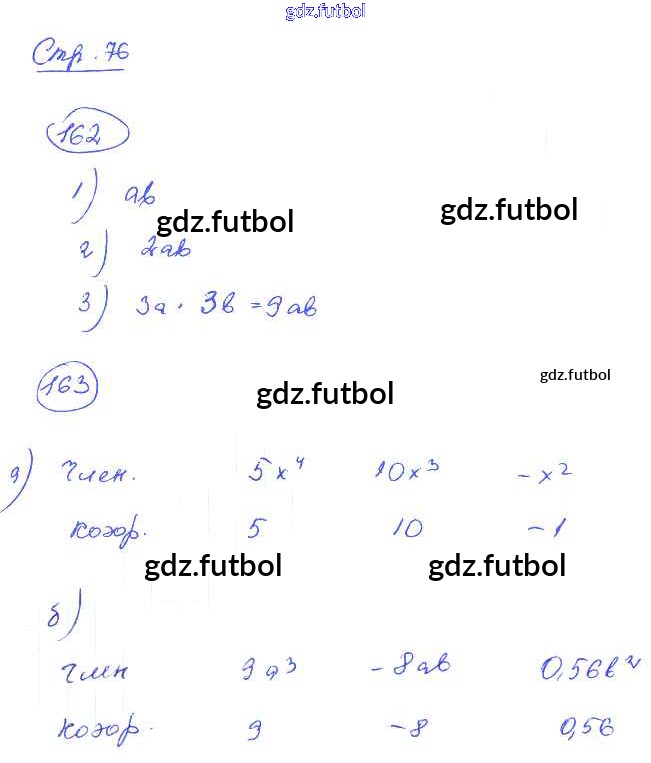 gdz.futbol
Стр. 76
162
1) ab
gdz.futbol
gdz.futbol
2) 2ab
3) 3a · 3b = 9ab
163
gdz.futbol
gdz.futbol
а) Член. 5x⁴ 10x³ -x²
Коэф. 5 10 -1
gdz.futbol gdz.futbol
б)
Член 9a³ -8ab 0,56b²
Коэф. 9 -8 0,56